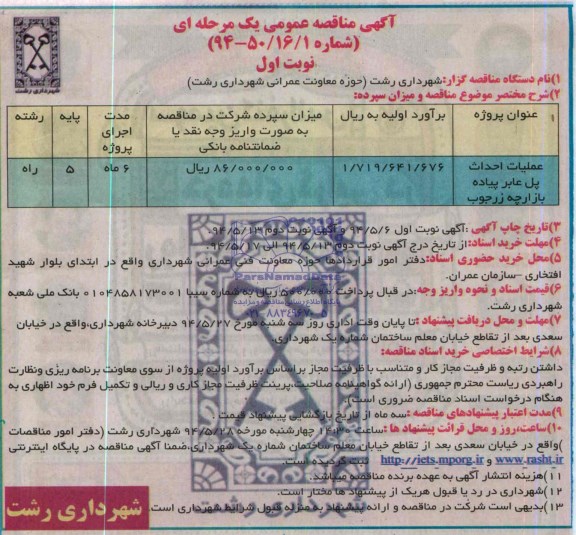 آگهی مناقصه عمومی یک مرحله ای
(شماره ۹۴-۵۰/۱۶/۱)
نوبت اول
شهرداری رشت
۱)نام دستگاه مناقصه گزار:شهرداری رشت (حوزه معاونت عمرانی شهرداری رشت)
۲)شرح مختصر موضوع مناقصه و میزان سپرده:
عنوان پروژه
برآورد اولیه به ریال
میزان سپرده شرکت در مناقصه به صورت واریز وجه نقد یا ضمانتنامه بانکی
مدت اجرای پروژه
پایه
رشته
عملیات احداث پل عابر پیاده بازارچه زرجوب
۱/۷۱۹/۶۴۱/۶۷۶
۸۶/۰۰۰/۰۰۰ ریال
۶ ماه
۵
راه
۳)تاریخ چاپ آگهی :آگهی نوبت اول ۹۴/۵/۶ و آگهی نوبت دوم ۹۴/۵/۱۳.
۴)مهلت خرید اسناد:از تاریخ درج آگهی نوبت دوم ۹۴/۵/۱۳ الی ۹۴/۵/۱۷.
۵)محل خرید حضوری اسناد:دفتر امور قراردادها حوزه معاونت فنی عمرانی شهرداری واقع در ابتدای بلوار شهید
افتخاری -سازمان عمران.
۶)قیمت اسناد و نحوه واریز وجه:در قبال پرداخت ۵۰۰/۰۰۰ ریال به شماره سیبا ۰۱۰۴۸۵۸۱۷۳۰۰۱ بانک ملی شعبه
شهرداری رشت.
۷)مهلت و محل دریافت پیشنهاد :تا پایان وقت اداری روز سه شنبه مورخ ۹۴/۵/۲۷ دبیرخانه شهرداری،واقع در خیابان
سعدی بعد از تقاطع خیابان معلم ساختمان شماره یک شهرداری.
۸)شرایط اختصاصی خرید اسناد مناقصه:
داشتن رتبه و ظرفیت مجاز کار و متناسب با ظرفیت مجاز براساس برآورد اولیه پروژه از سوی معاونت برنامه ریزی ونظارت
راهبردی ریاست محترم جمهوری (ارائه گواهینامه صلاحیت،پرینت ظرفیت مجاز کاری و ریالی و تکمیل فرم خود اظهاری به
هنگام درخواست اسناد مناقصه ضروری است).
۹)مدت اعتبار پیشنهادهای مناقصه :سه ماه از تاریخ بازگشایی پیشنهاد قیمت .
۱۰)ساعت،روز و محل قرائت پیشنهاد ها :ساعت ۱۴:۳۰ چهارشنبه مورخه ۹۴/۵/۲۸ شهرداری رشت (دفتر امور مناقصات
)واقع در خیابان سعدی بعد از تقاطع خیابان معلم ساختمان شماره یک شهرداری،ضمنا آگهی مناقصه در پایگاه اینترنتی
www.rasht.ir و http://iets.mporg.ir ثبت گردیده است.
۱۱)هزینه انتشار آگهی به عهده برنده مناقصه میباشد.
۱۲)شهرداری در رد یا قبول هریک از پیشنهاد ها مختار است.
۱۳)بدیهی است شرکت در مناقصه و ارائه پیشنهاد به منزله قبول شرایط شهرداری است.
شهرداری رشت
ParsNamadData
۰۲۱-۸۸۳۴۹۶۷۰-۵